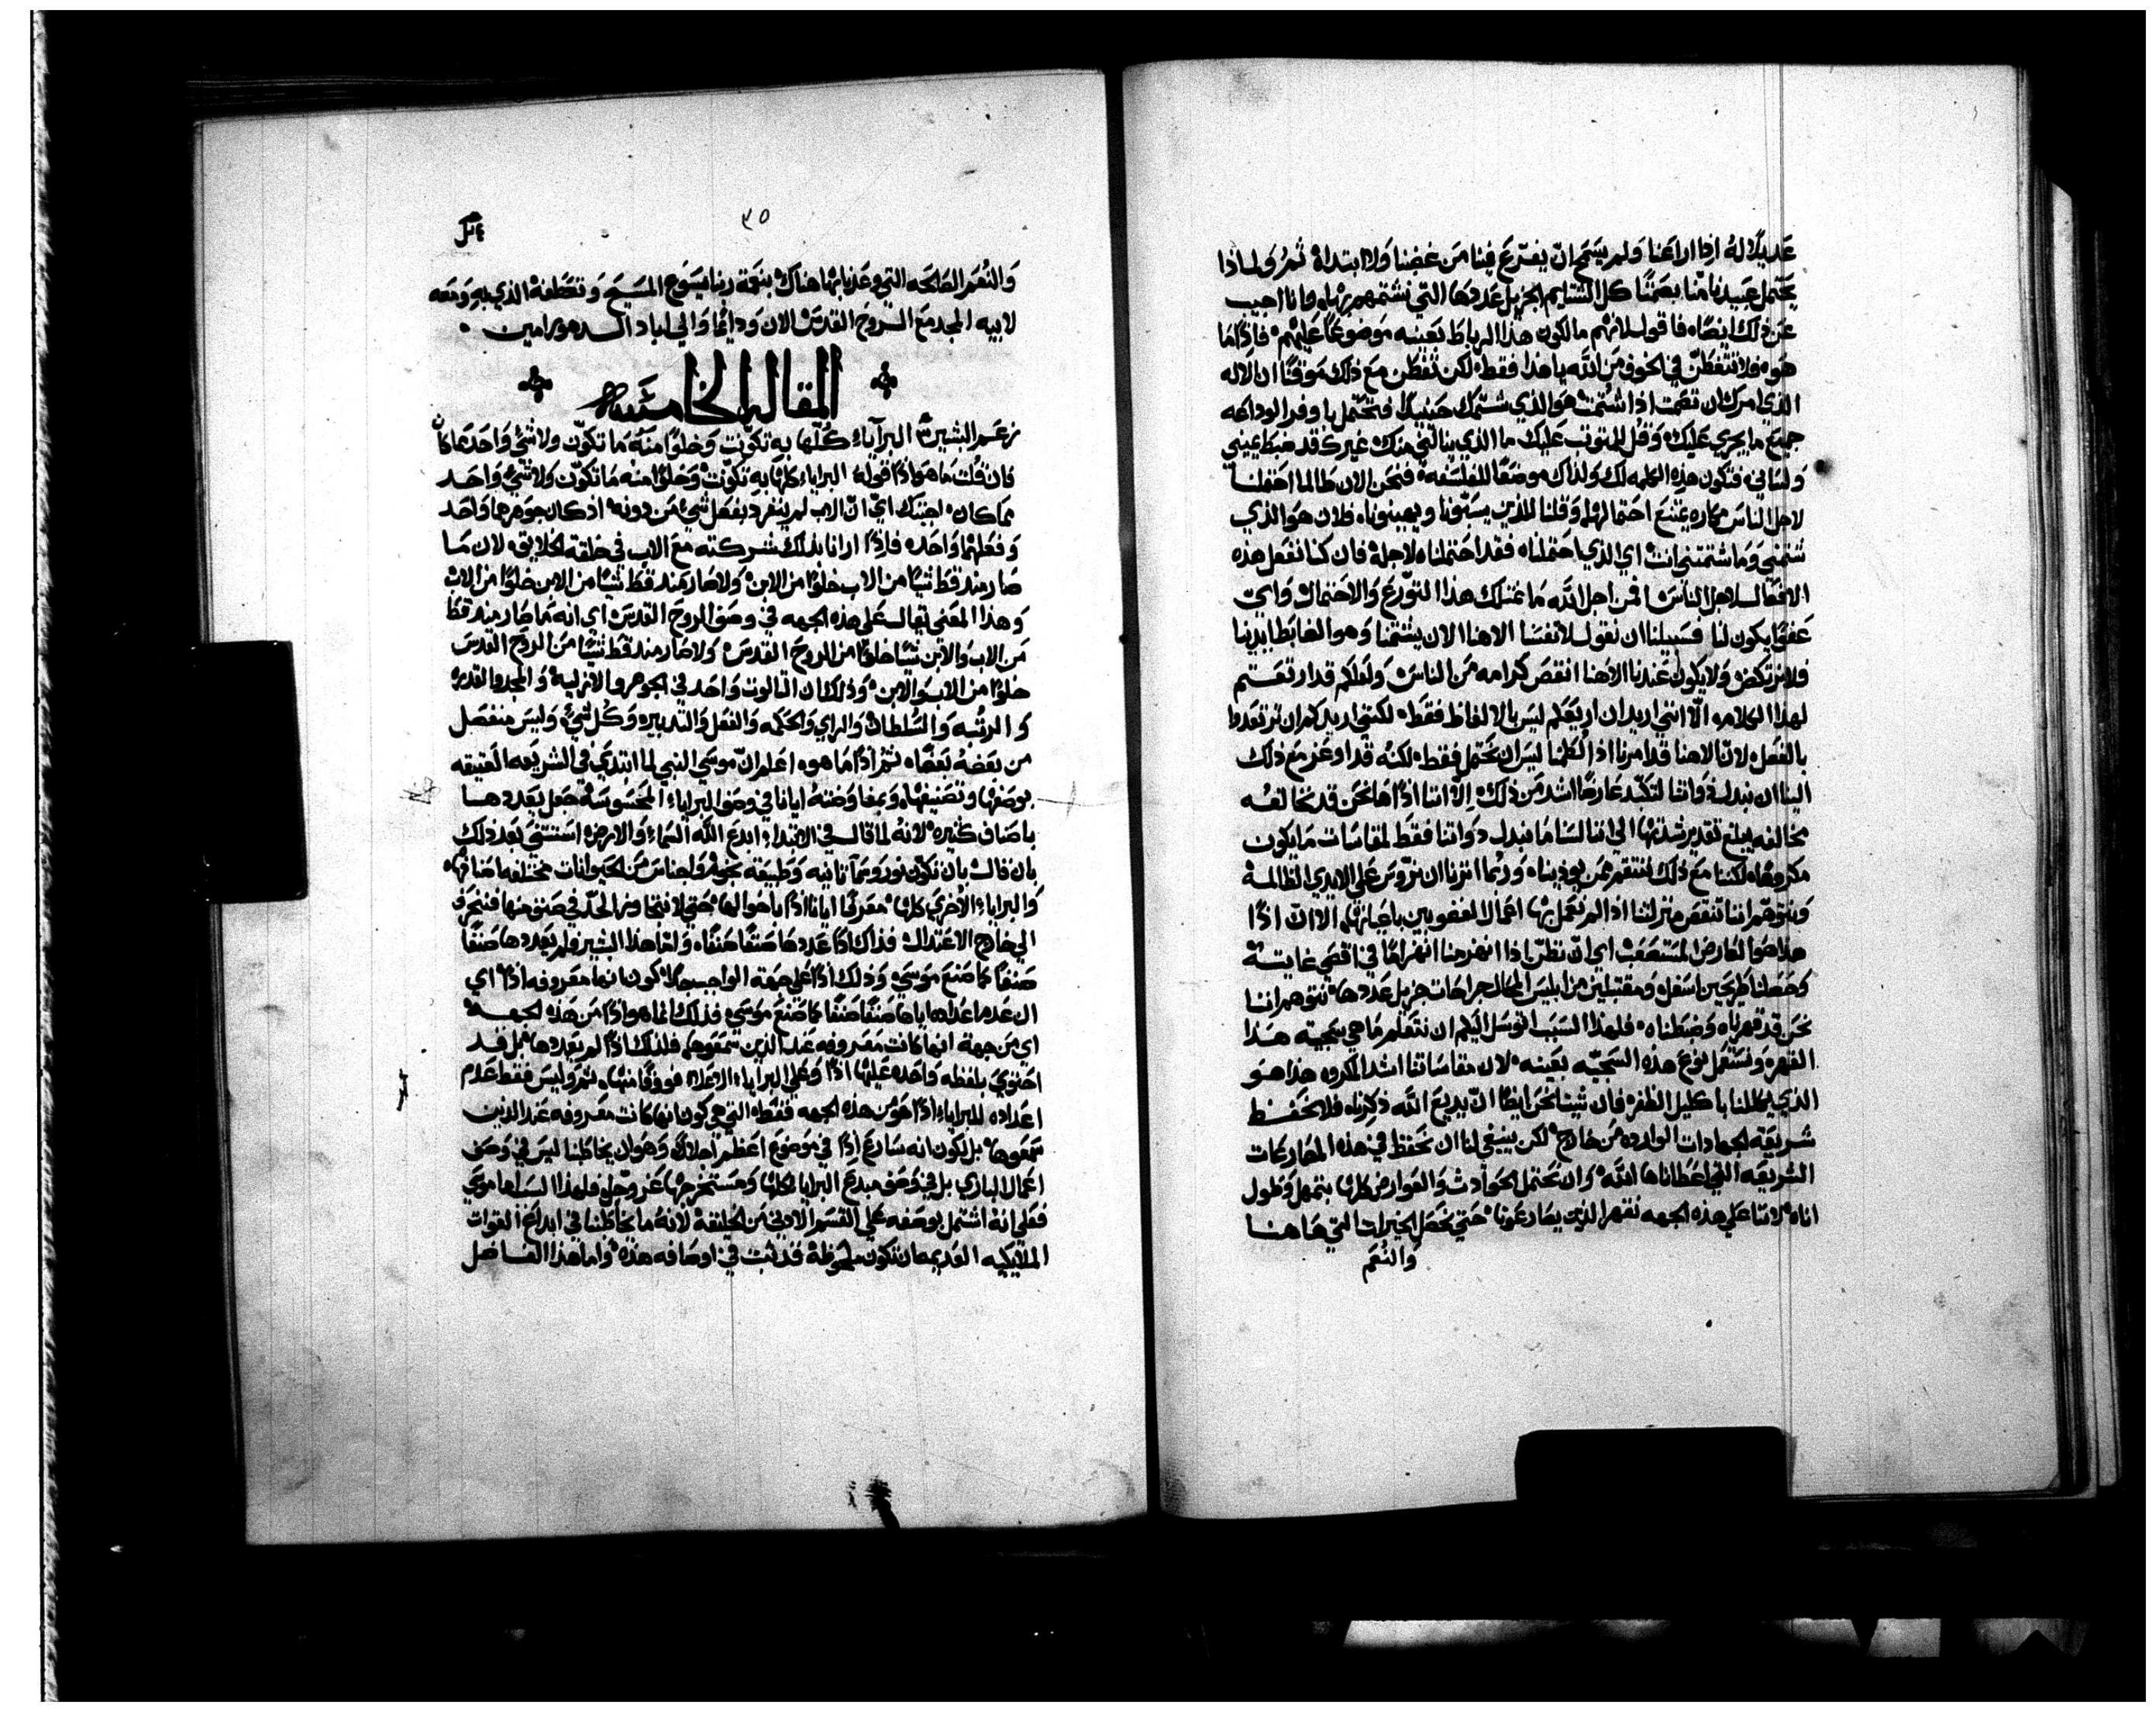 عديلاً له اذا اراعنا ولم يسمح ان يفترع فينا من غضبنا ولا ابتداه ثمر ولماذا
يحتمل عبيدنا منا بصمتنا كل الشتايم الجزيل عددها التي نشتمهم بها وانا اجيب
عن ذلك ايضاً فاقول لانهم مالكون هذا الرباط بعينه موضوعاً عليهم فاذاً ما
هوه فلا تتفطن في الخوف من الله يا هذا فقط لكن تفطن مع ذلك موقناً ان الاله
الذي امرك ان تصمت اذا شتمت هو الذي شتمك حينيذ فتحتمل باوفر الوداعه
جميع ما يجري عليك وقل للمتوثب عليك ما الذي ينالني منك غيرك قد ضبط يميني
ولساني فتكون هذه الكلمه لك ولذاك موضعاً للفلسفه فنحن الان طالما احتملنا
لاجل الناس مكاره يمتنع احتمالها وقلنا للذين يسبونا ويهينونا فلان هو الذي
شتمني وما شتمتني انت اي الذي احتملناه فقد احتملناه لاجله فان كنا نفعل هذه
الافعال لاجل الناس افمن اجل الله ما نمتلك هذا التورع والاحتمال واي
عفو يكون لنا فسبيلنا ان نقول لانفسنا الاهنا الان يشتمنا وهو الضابط ايدينا
فلا نرتكض ولا يكون عندنا الاهنا انقص كرامه من الناس ولعلكم قد ارتعتم
لهذا الكلام الا انني اريد ان اريعكم ليس بالالفاظ فقط لكنني اريدكم ان ترتعدوا
بالفعل لان الاهنا قد امرنا اذا لُطمنا ليس ان نحتمل فقط لكنه قد اوعز مع ذلك
الينا ان نبدل ذواتنا لتكبد عارضاً اشد من ذلك الا اننا اذاً ها نحن قد نخالفه
مخالفه يبلغ تقدير شدتها الى اننا لسنا ما نبدل ذواتنا فقط لمقاسات ما يكون
مكروهاً لكننا مع ذلك ننتقم ممن يوذينا وربما اثرنا ان نتروس علي الايدي الظالمة
ونتوهم اننا تنقص منزلتنا اذا لم نعمل بها اعمال المغضوبين باعيانهم الا ان اذاً
هذا هو العارض المستصعب اي ان نظن اذا انهزمنا انهزاماً في اقصي غايته
وحصلنا طريحين اسفل ومقتبلين من ابليس المحال جراحات جزيل عددها نتوهم اننا
نحن قد قهرناه وضبطناه فلهذا السبب اتوسل اليكم ان نتعلم ما هي سجيه هذا
القهر ونستعمل نوع هذه السجيه بعينه لان مقاساتنا اشد المكروه هذا هو
الذي يكللنا باكليل الظفر فان شينا نحن ايضاً ان يذيع الله ذكرنا فلا نحفظ
شريعة الجهادات الوارده من خارج لكن ينبغي لنا ان نحفظ في هذه المصارعات
الشريعه التي اعطاناها الله وان نحتمل الحوادث والعوارض كلها بتمهل وطول
اناه لاننا علي هذه الجهه نقهر الذين يصارعونا حتي نحصل الخيرات التي هاهنا
والنعم
٣٥
والنعم الصالحه التي وعدنا بها هناك بنعمة ربنا يسوع المسيح وتعطفه الذي به ومعه
لابيه المجد مع الروح القدس الان ودايماً والي اباد الدهور امين
المقاله الخامسه
زعم البشير البراياء كلها به تكونت وخلواً منه ما تكون ولا شي واحد مما كان
فان قلت ما هو اذاً قوله البراياء كلها به تكونت وخلواً منه ما تكون ولا شي واحد
مما كان اجبتك اي ان الاب لم ينفرد بفعل شي من دونه اذ كان جوهرهما واحد
وفعلهما واحد فاذاً ارانا بذلك شركته مع الاب في خلقة الخلايق لان ما
صار منذ قط شياً من الاب خلواً من الابن ولا صار منذ قط شياً من الابن خلواً من الاب
وهذا المعني يقال علي هذه الجهه في وصف الروح القدس اي انه ما صار منذ قط
من الاب والابن شياً خلواً من الروح القدس ولا صار منذ قط شياً من الروح القدس
خلواً من الاب والابن وذلك ان الثالوت واحد في الجوهر والازليه والمجد والقدره
والربوبيه والسلطان والراي والحكمه والفعل والتدبير وكل شي وليس منفصل
من بعضه بعضاً ثم اذاً ما هوه اعلم ان موسي النبي لما ابتدي في الشريعه العتيقه
بوصفها وتصنيفها وبمفاوضته ايانا في وصف البراياء المحسوسه جعل يعددها
باصناف كثيره لانه لما قال في الابتداء ابدع الله السماء والارض استثني بعد ذلك
بان قال بان تكون نور وسما ثانيه وطبيعة نجوم واجناس من الحيوانات مختلفه اصنافها
والبراياء الاخري كلها معرفاً ايانا اذاً باحوالها حتي لا نتجاوز الحد في صنف منها فننجرف
الي خارج الاعتدال فذاك اذاً عددها صنفاً صنفاً واما هذا البشير فلم يعددها صنفاً
صنفاً كما صنع موسي وذلك اذاً علي جهة الواجب جداً لكون انها معروفه اذاً اي
ان عدم اعداده اياها صنفاً صنفاً كما صنع موسي فذلك انما هو اذاً من هذه الجهه
اي من جهة انها كانت معروفه عند الذين سمعوها فلذلك اذاً لم يعددها بل قد
احتوي بلفظه واحده عليها اذاً وعلي البراياء الاعلاء فوقاً منها ثم وليس فقط عدم
اعداده للبراياء اذاً هو من هذه الجهه فقط التي هي كون انها كانت معروفه عند الذين
سمعوها بل لكون انه سارع اذاً في موضوع اعظم اجلالاً وهو ان يخاطبنا ليس في وصف
اعمال الباري بل في وصف مبدع البرايا كلها ومستخرجها عز وجل فلهذا السبب اما موسي
فعلي انه اشتمل بوصفه علي القسم الادني من الخليقه لانه ما يخاطبنا في ابداع القوات
الملايكيه القديمه ان تكون ملحوظة قد ثبت في اوصافه هذه واما هذا الفاضل